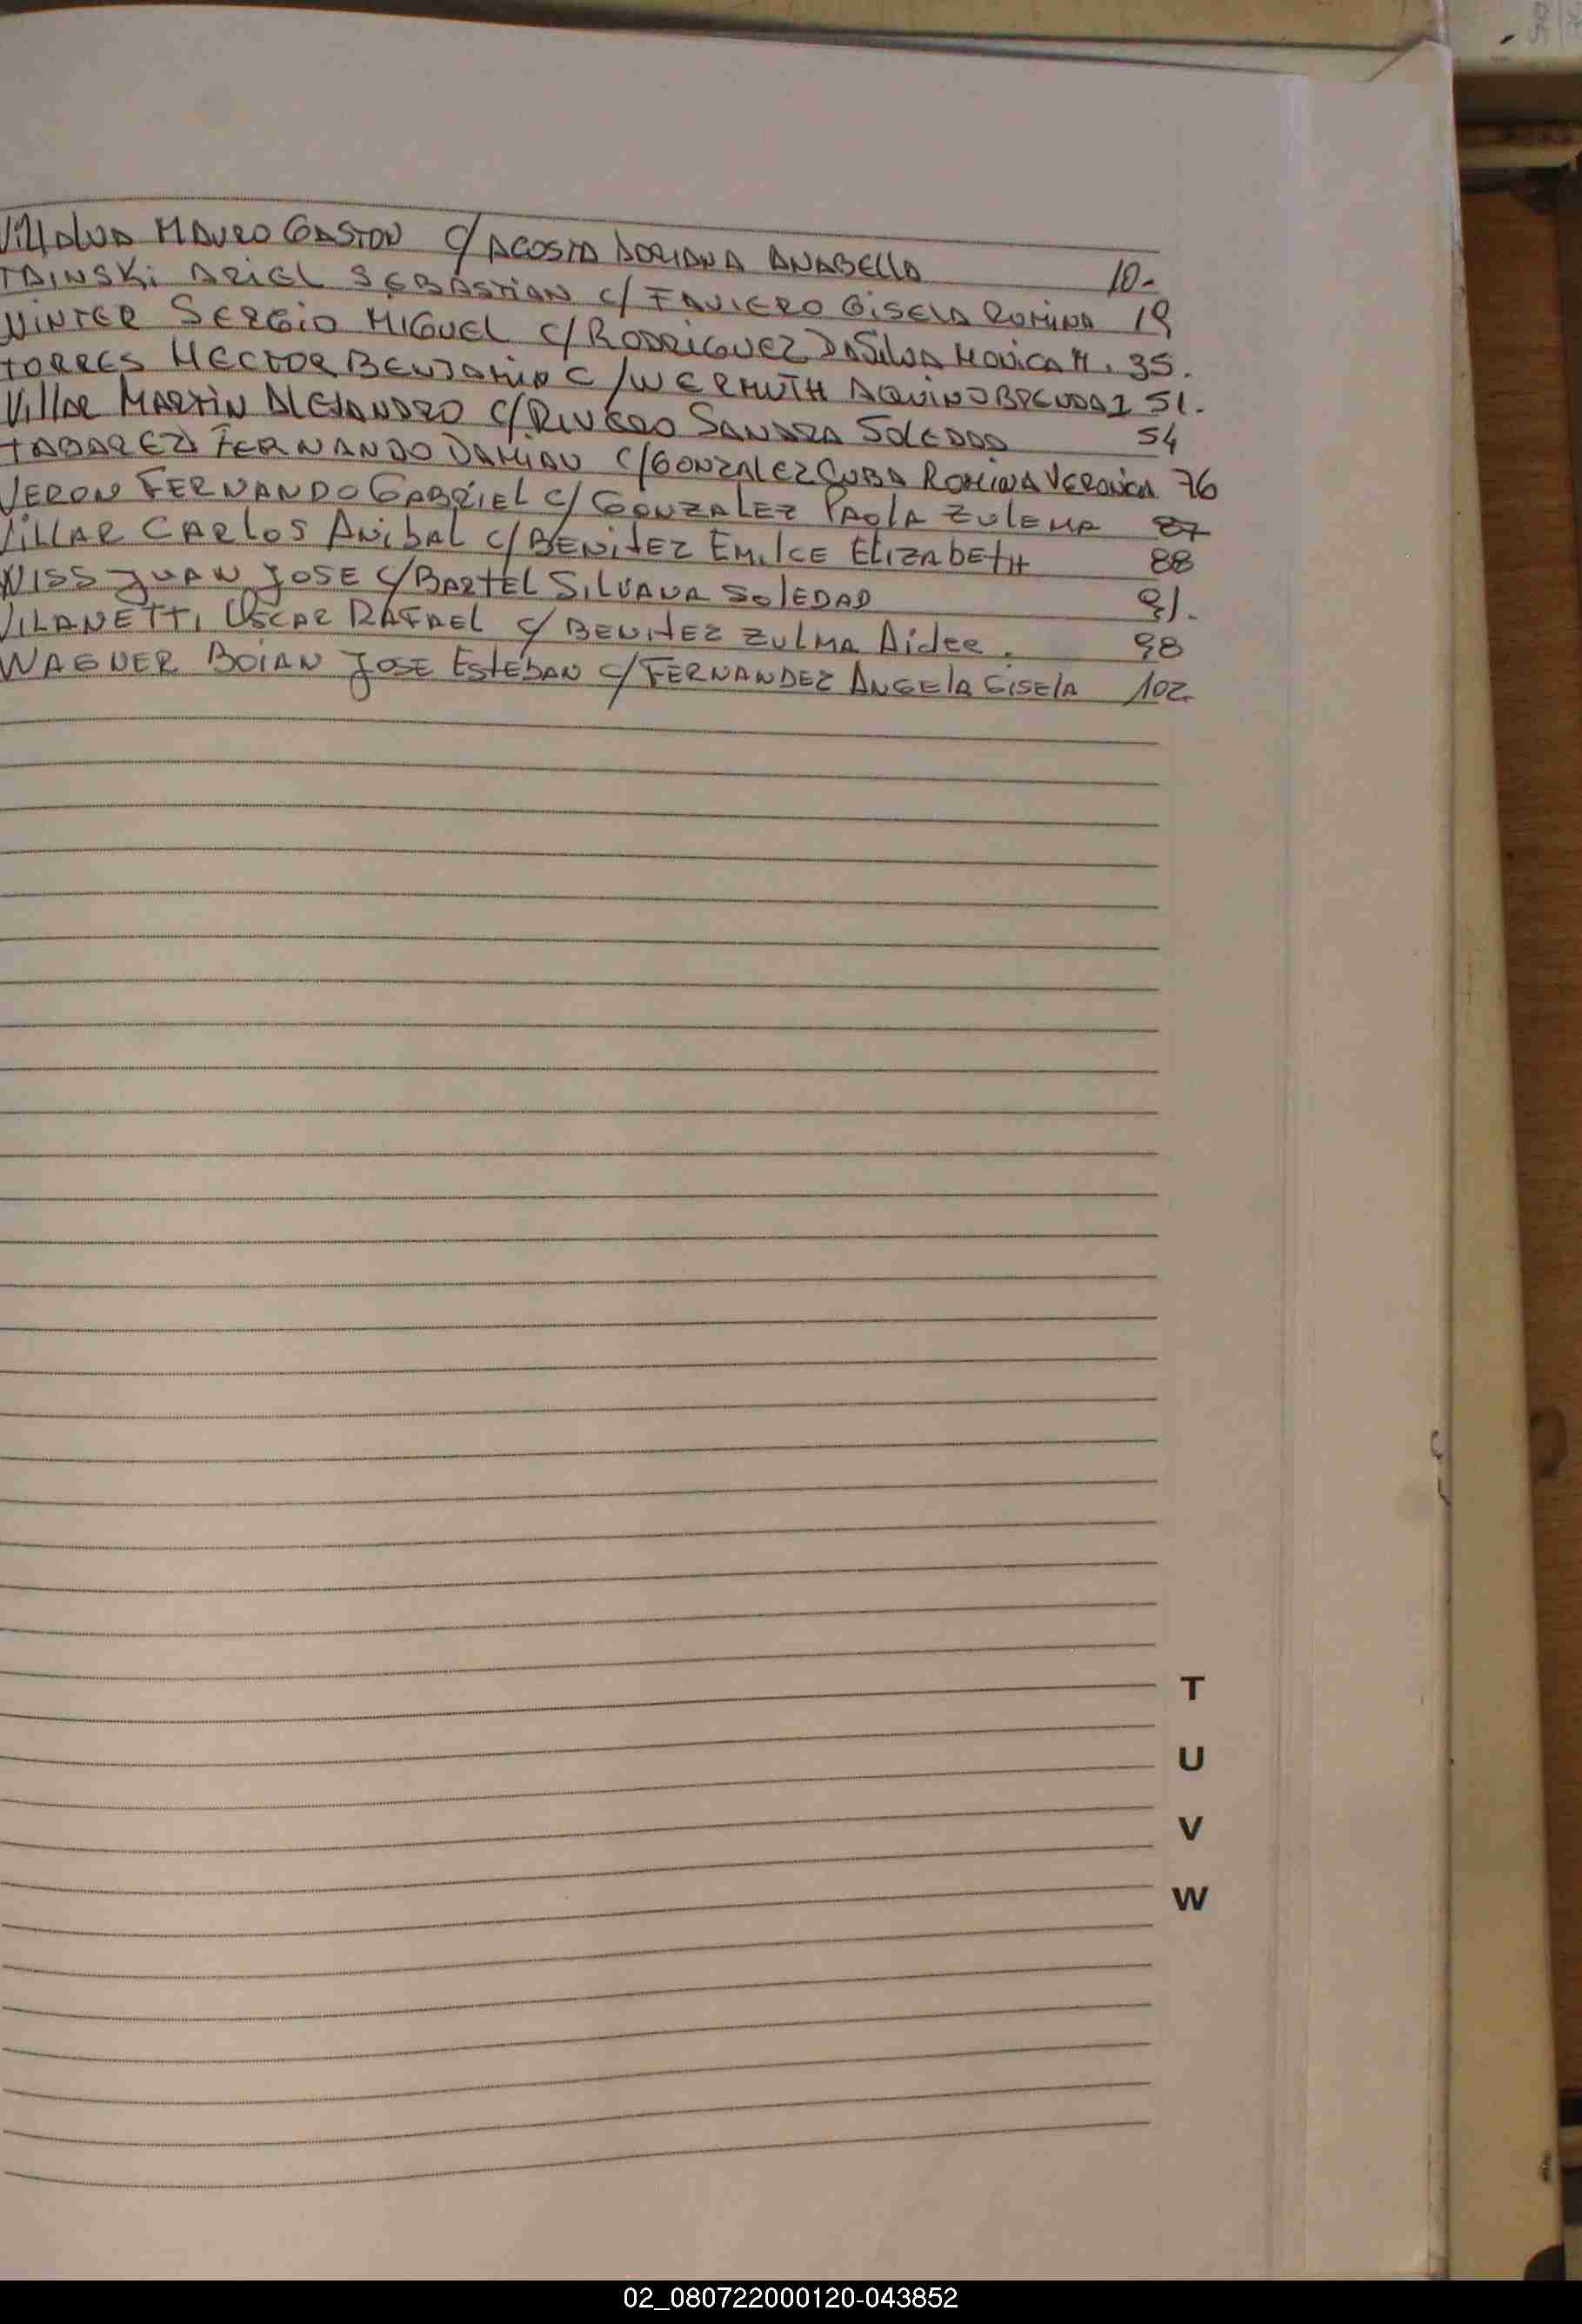 Villalva Mauro Gaston c/ Acosta Adriana Anabella 10-
Tainski Ariel Sebastian c/ Faviero Gisela Romina 19
Winter Sergio Miguel c/ Rodriguez DaSilva Monica M. 35.
Torres Hector Benjamin c/ Wermuth Aquino Brenda I 51.
Villar Martin Alejandro c/ Rivero Sandra Soledad 54
Tabarez Fernando Damian c/ Gonzalez Cuba Romina Veronica 76
VERON FERNANDO GABRIEL c/ GONZALEZ PAOLA ZULEMA 87
VILLAR CARLOS Anibal c/ BENITEZ EMILCE ELIZABETH 88
WISS JUAN JOSE c/ BARTEL SILVANA SOLEDAD 91.
VILANETTI OSCAR RAFAEL c/ BENITEZ ZULMA Aidee. 98
WAGNER BOIAN JOSE ESTEBAN c/ FERNANDEZ ANGELA GISELA 102.
T
U
V
W
02_080722000120-043852